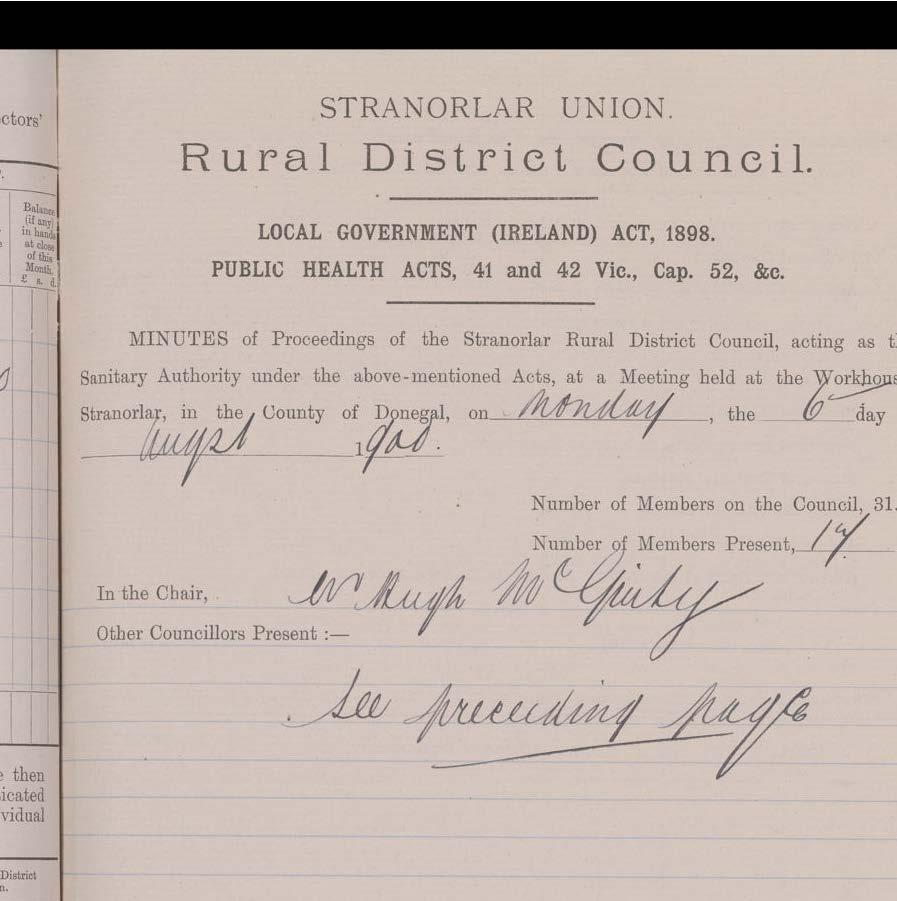 ctors'
Balance
(if any)
in hands
at close
of this
Month.
£ s. d.
e then
icated
vidual
District
n.
STRANORLAR UNION.
Rural District Council.
LOCAL GOVERNMENT (IRELAND) ACT, 1898.
PUBLIC HEALTH ACTS, 41 and 42 Vic., Cap. 52, &c.
MINUTES of Proceedings of the Stranorlar Rural District Council, acting as t
Sanitary Authority under the above-mentioned Acts, at a Meeting held at the Workhous
Stranorlar, in the County of Donegal, on Monday, the 6 day
Augst 1900.
Number of Members on the Council, 31.
Number of Members Present, 17
In the Chair, Mr Hugh McGinty
Other Councillors Present :—
See preceding page